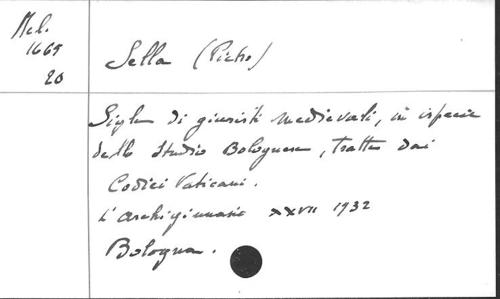 Mel.
1665
20
Sella (Pietro)
Sigle di giuristi medievali, in ispecie
dello Studio Bolognese, tratte dai
Codici Vaticani.
L'Archiginnasio XXVII 1932
Bologna.